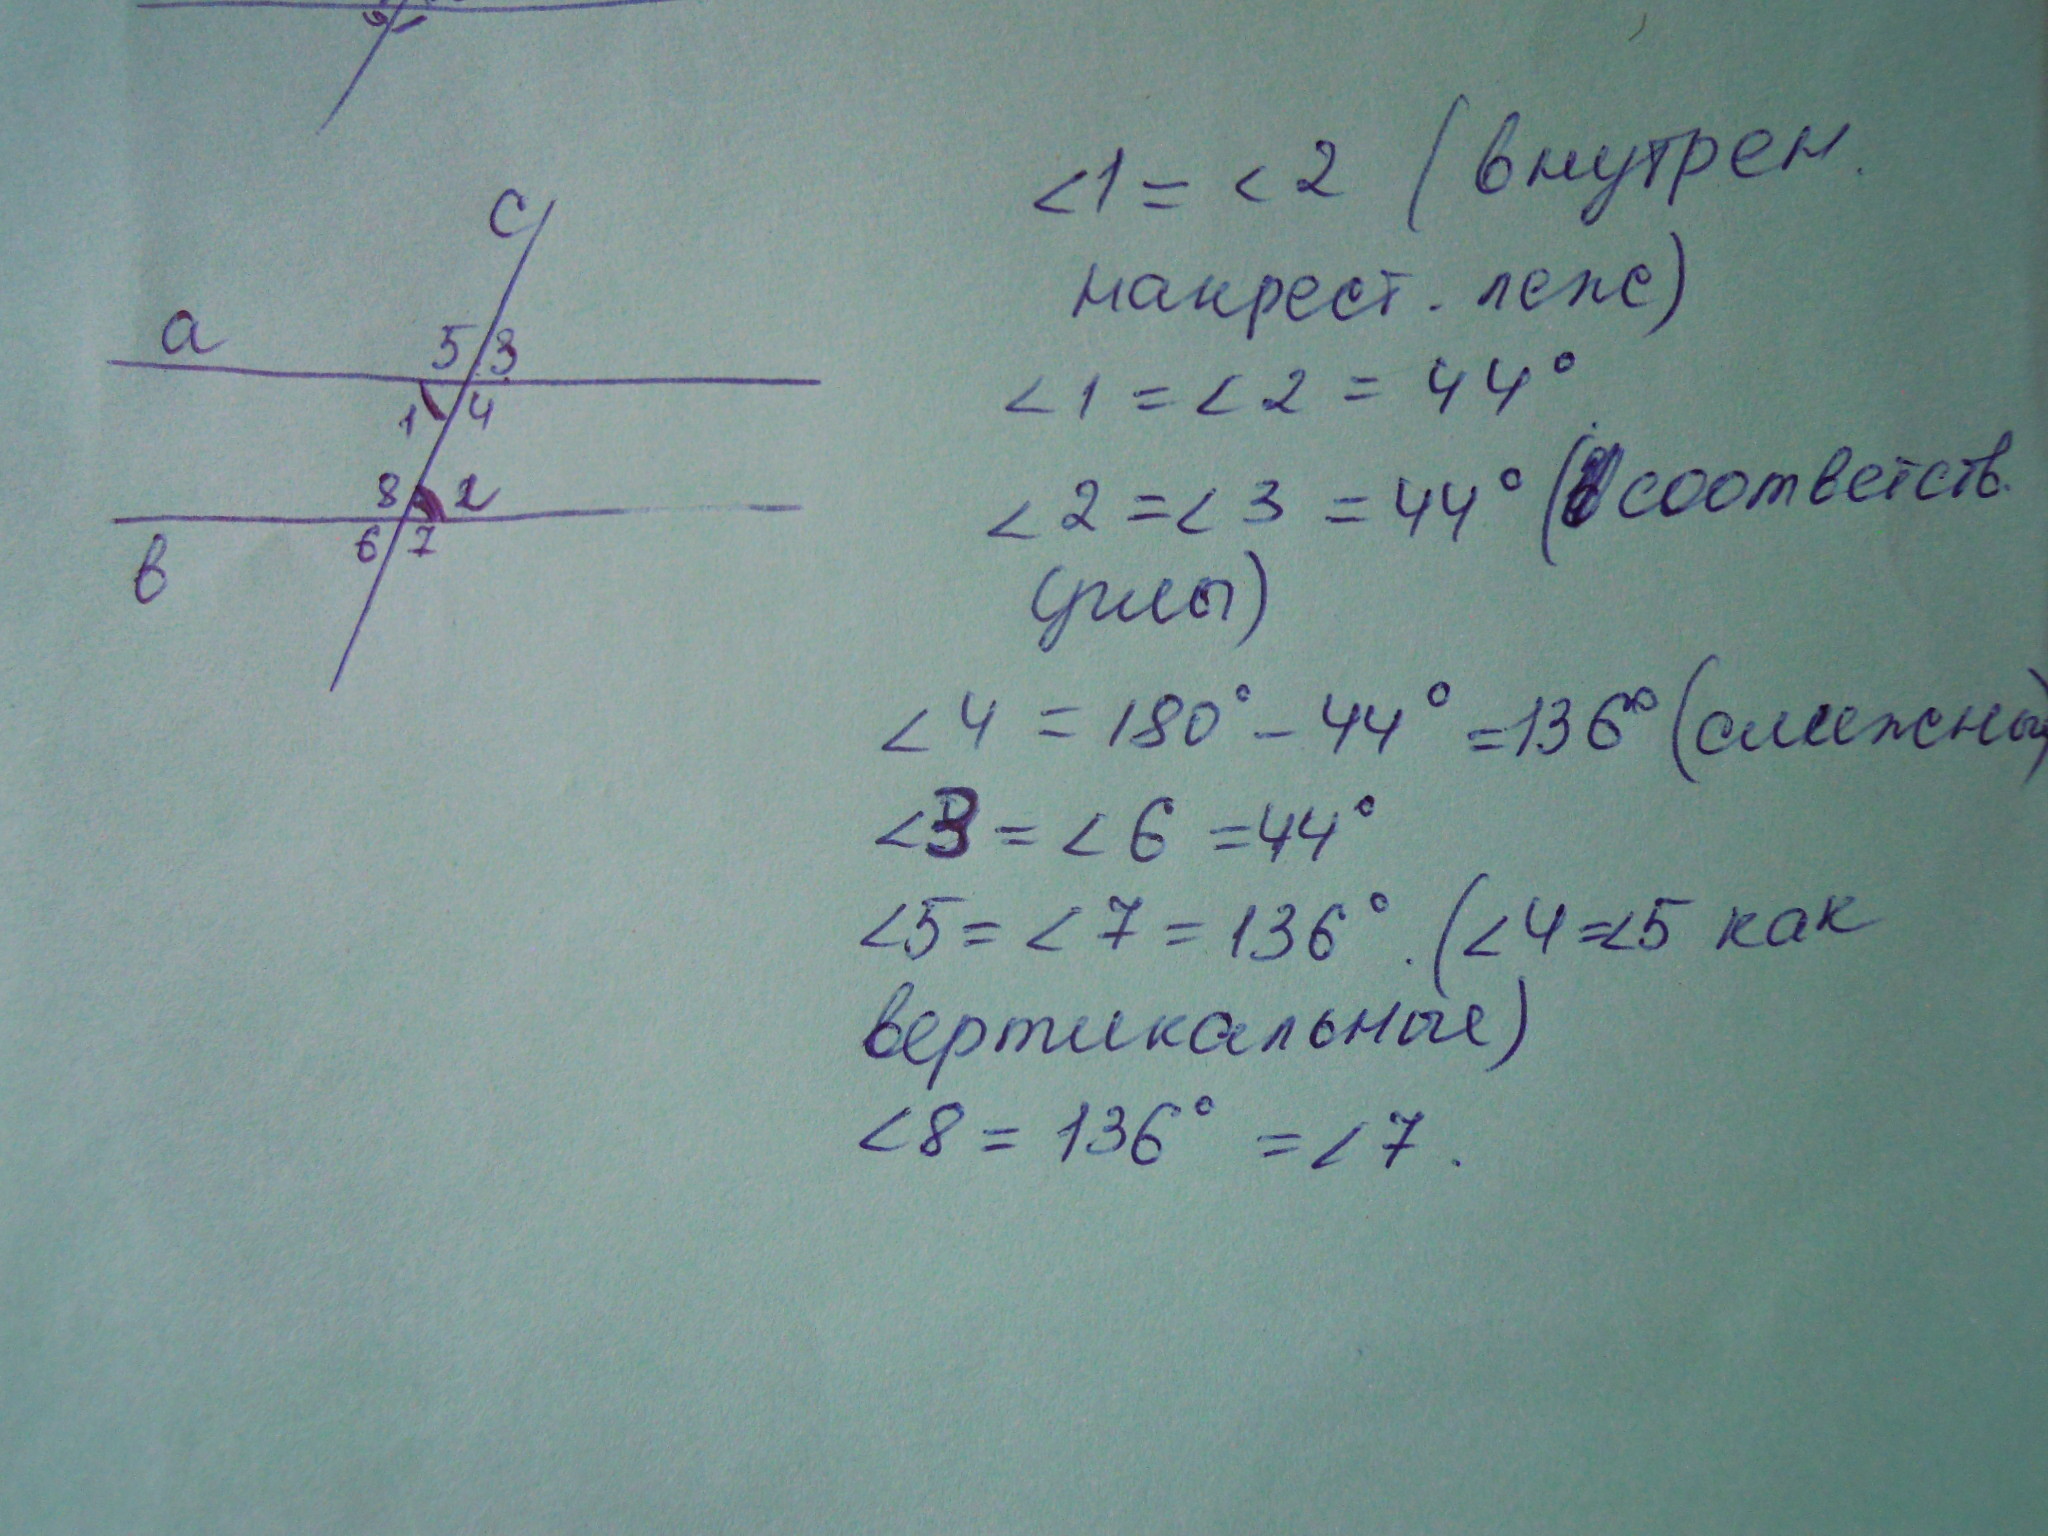 c
a
5 3
1 4
8 2
6 7
в
<1 = <2 (внутрен.
накрест. леж)
<1 = <2 = 44°.
<2 = <3 = 44° (соответств.
углы)
<4 = 180° - 44° = 136° (смежны)
<3 = <6 = 44°
<5 = <7 = 136°. (<4 = <5 как
вертикальные)
<8 = 136° = <7.